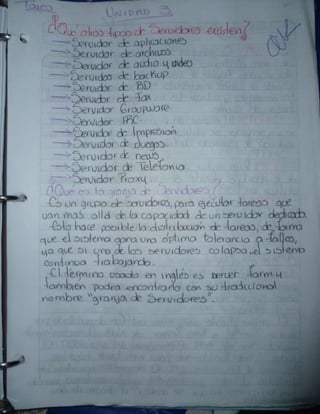 Tarea
UNIDAD 3
¿Que otros tipos de Servidores existen?
Servidor de aplicaciones
Servidor de archivos
Servidor de audio y video
Servidor de backup
Servidor de BD
Servidor de fax
Servidor Groupware
Servidor IRC
Servidor de Impresión
Servidor de Juegos
Servidor de news
Servidor de Telefonia
Servidor Proxy
¿Que es la granja de Servidores?
Es un grupo de servidores, para ejecutar tareas que
van mas allá de la capacidad de un servidor dedicado.
Esto hace posible la distribución de tareas, de forma
que el sistema gana una optima tolerancia a fallos,
ya que si uno de los servidores colapsa, el sistema
continua trabajando.
El término usado en inglés es server farm y
tambien podra encontrarlo con su tradicional
nombre "granja de Servidores".